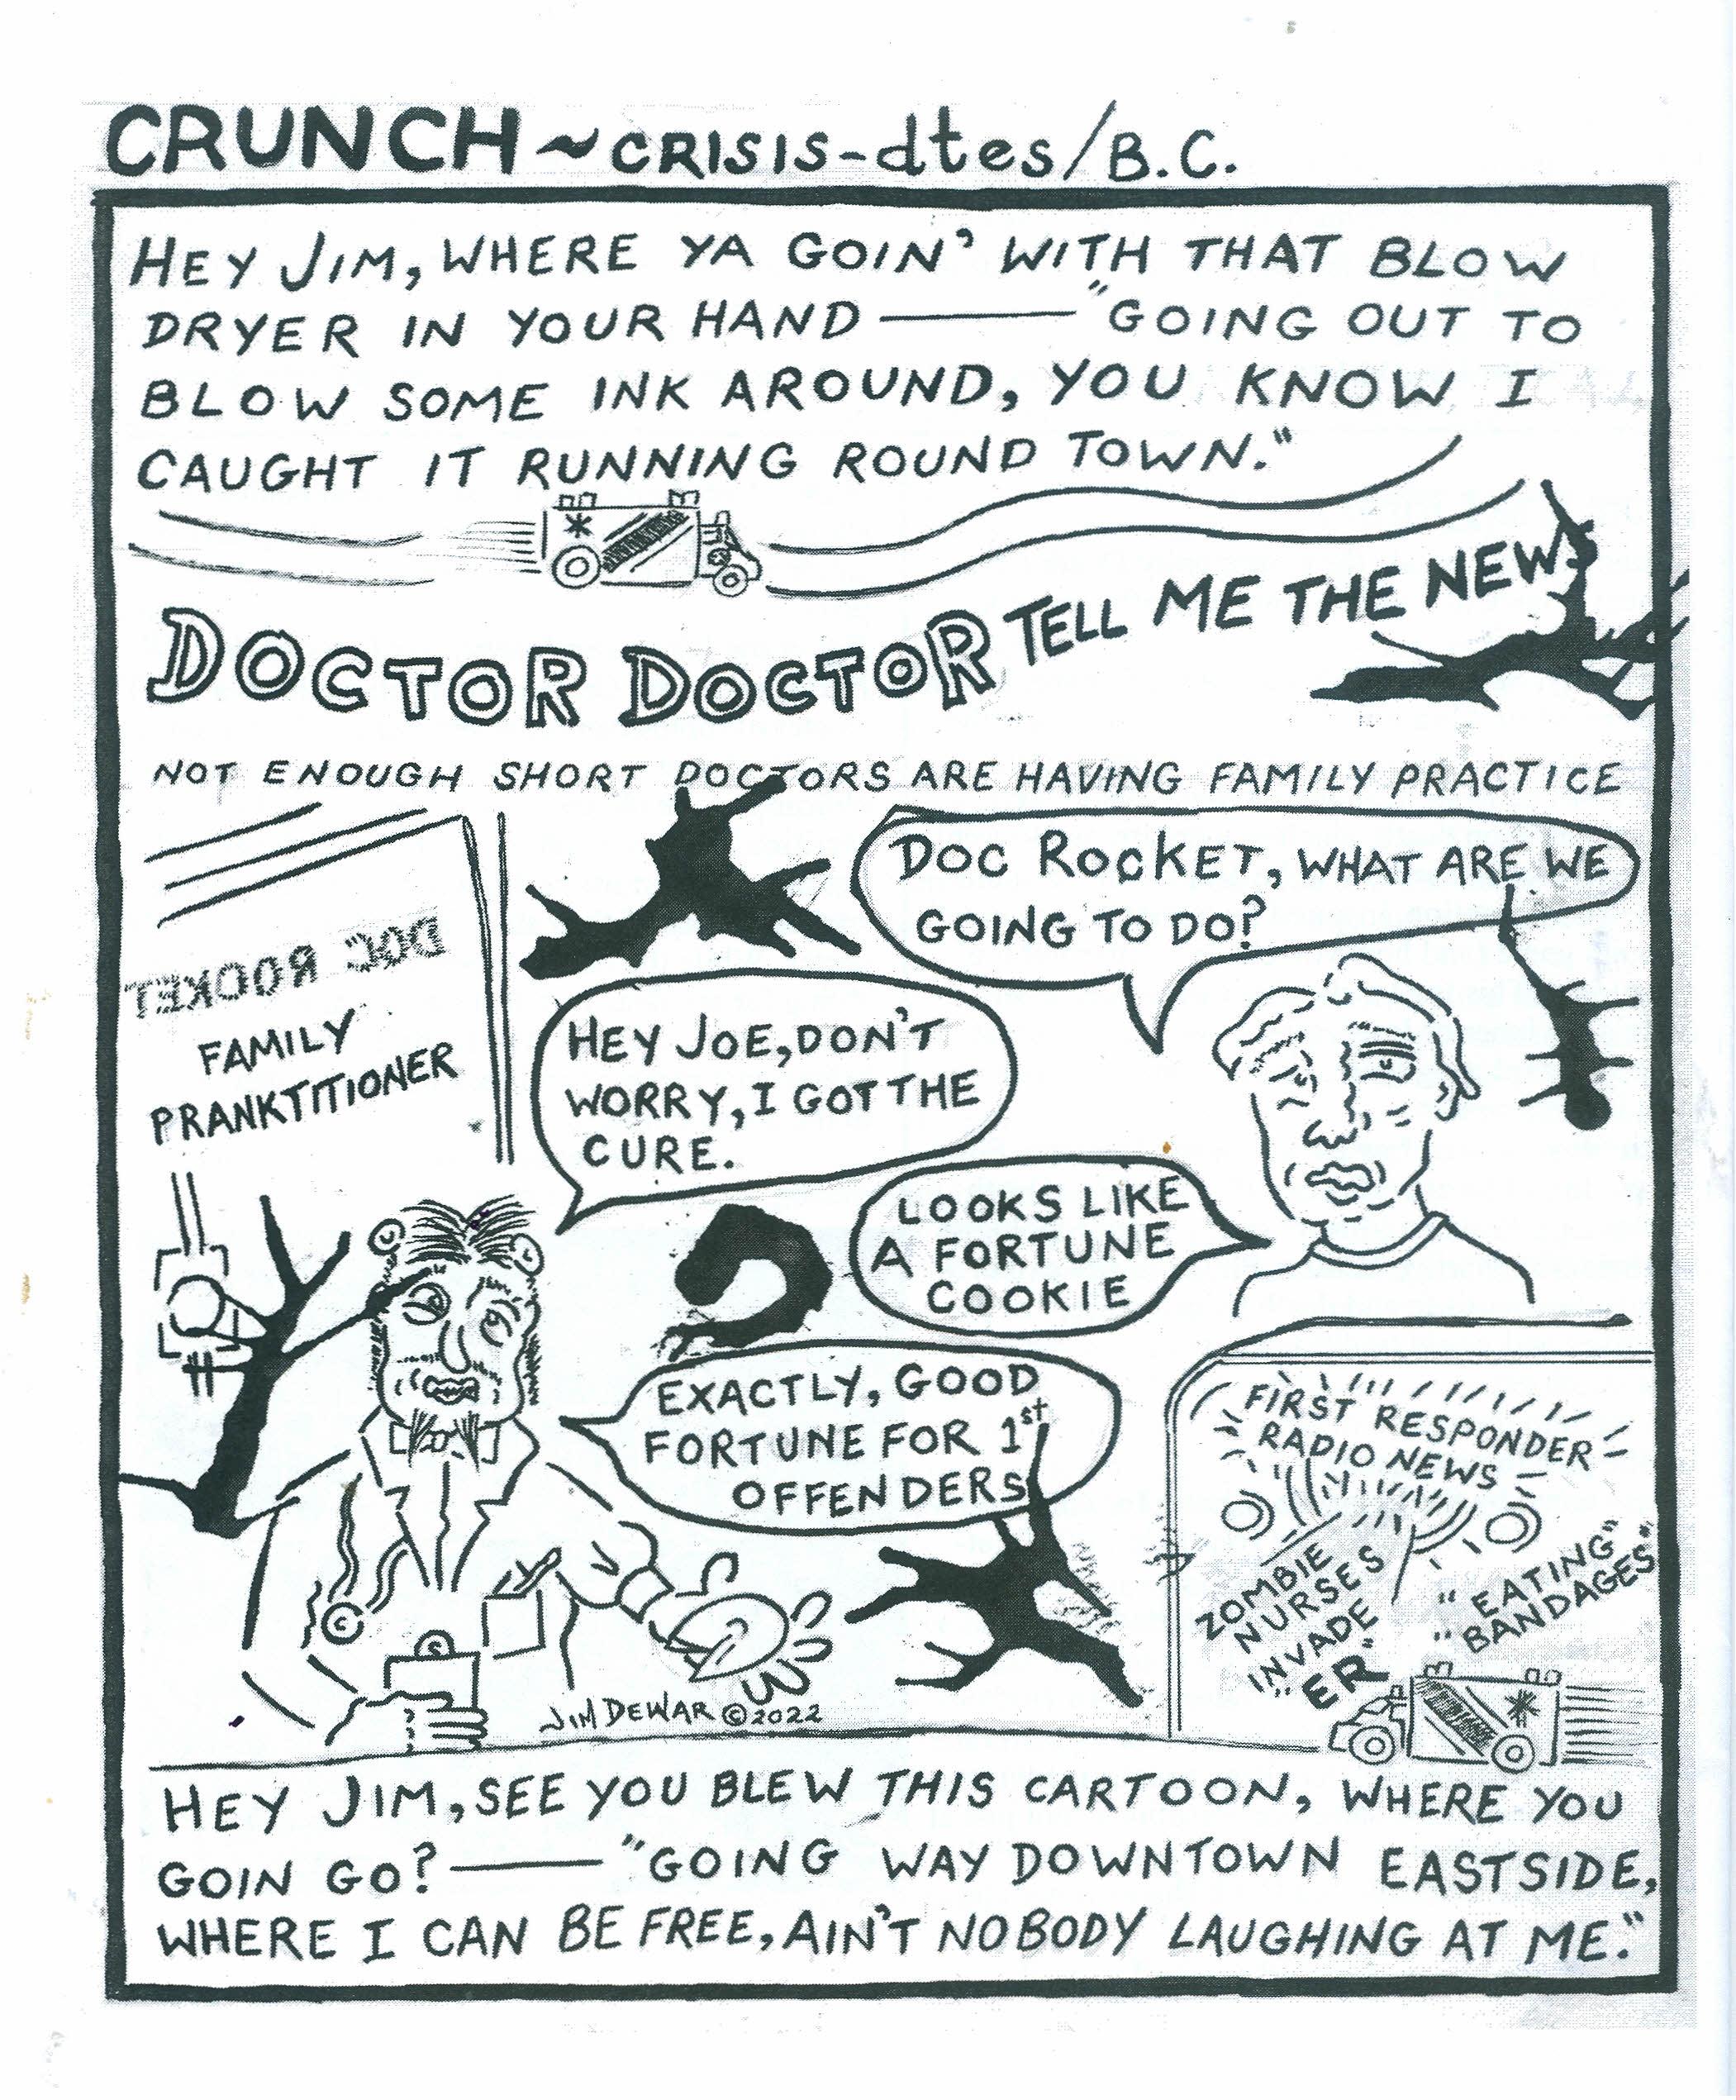 CRUNCH ~ CRISIS-dtes/B.C.
HEY JIM, WHERE YA GOIN' WITH THAT BLOW
DRYER IN YOUR HAND — "GOING OUT TO
BLOW SOME INK AROUND, YOU KNOW I
CAUGHT IT RUNNING ROUND TOWN."
DOCTOR DOCTOR TELL ME THE NEWS
NOT ENOUGH SHORT DOCTORS ARE HAVING FAMILY PRACTICE
DOC ROCKET, WHAT ARE WE
GOING TO DO?
DOC ROOKET
FAMILY
PRANKTITIONER
HEY JOE, DON'T
WORRY, I GOT THE
CURE.
LOOKS LIKE
A FORTUNE
COOKIE
EXACTLY, GOOD
FORTUNE FOR 1st
OFFENDERS
FIRST RESPONDER
RADIO NEWS
ZOMBIE
NURSES
INVADE
"ER"
"EATING"
"BANDAGES"
JIM DEWAR © 2022
HEY JIM, SEE YOU BLEW THIS CARTOON, WHERE YOU
GOIN GO? — "GOING WAY DOWNTOWN EASTSIDE,
WHERE I CAN BE FREE, AIN'T NOBODY LAUGHING AT ME."